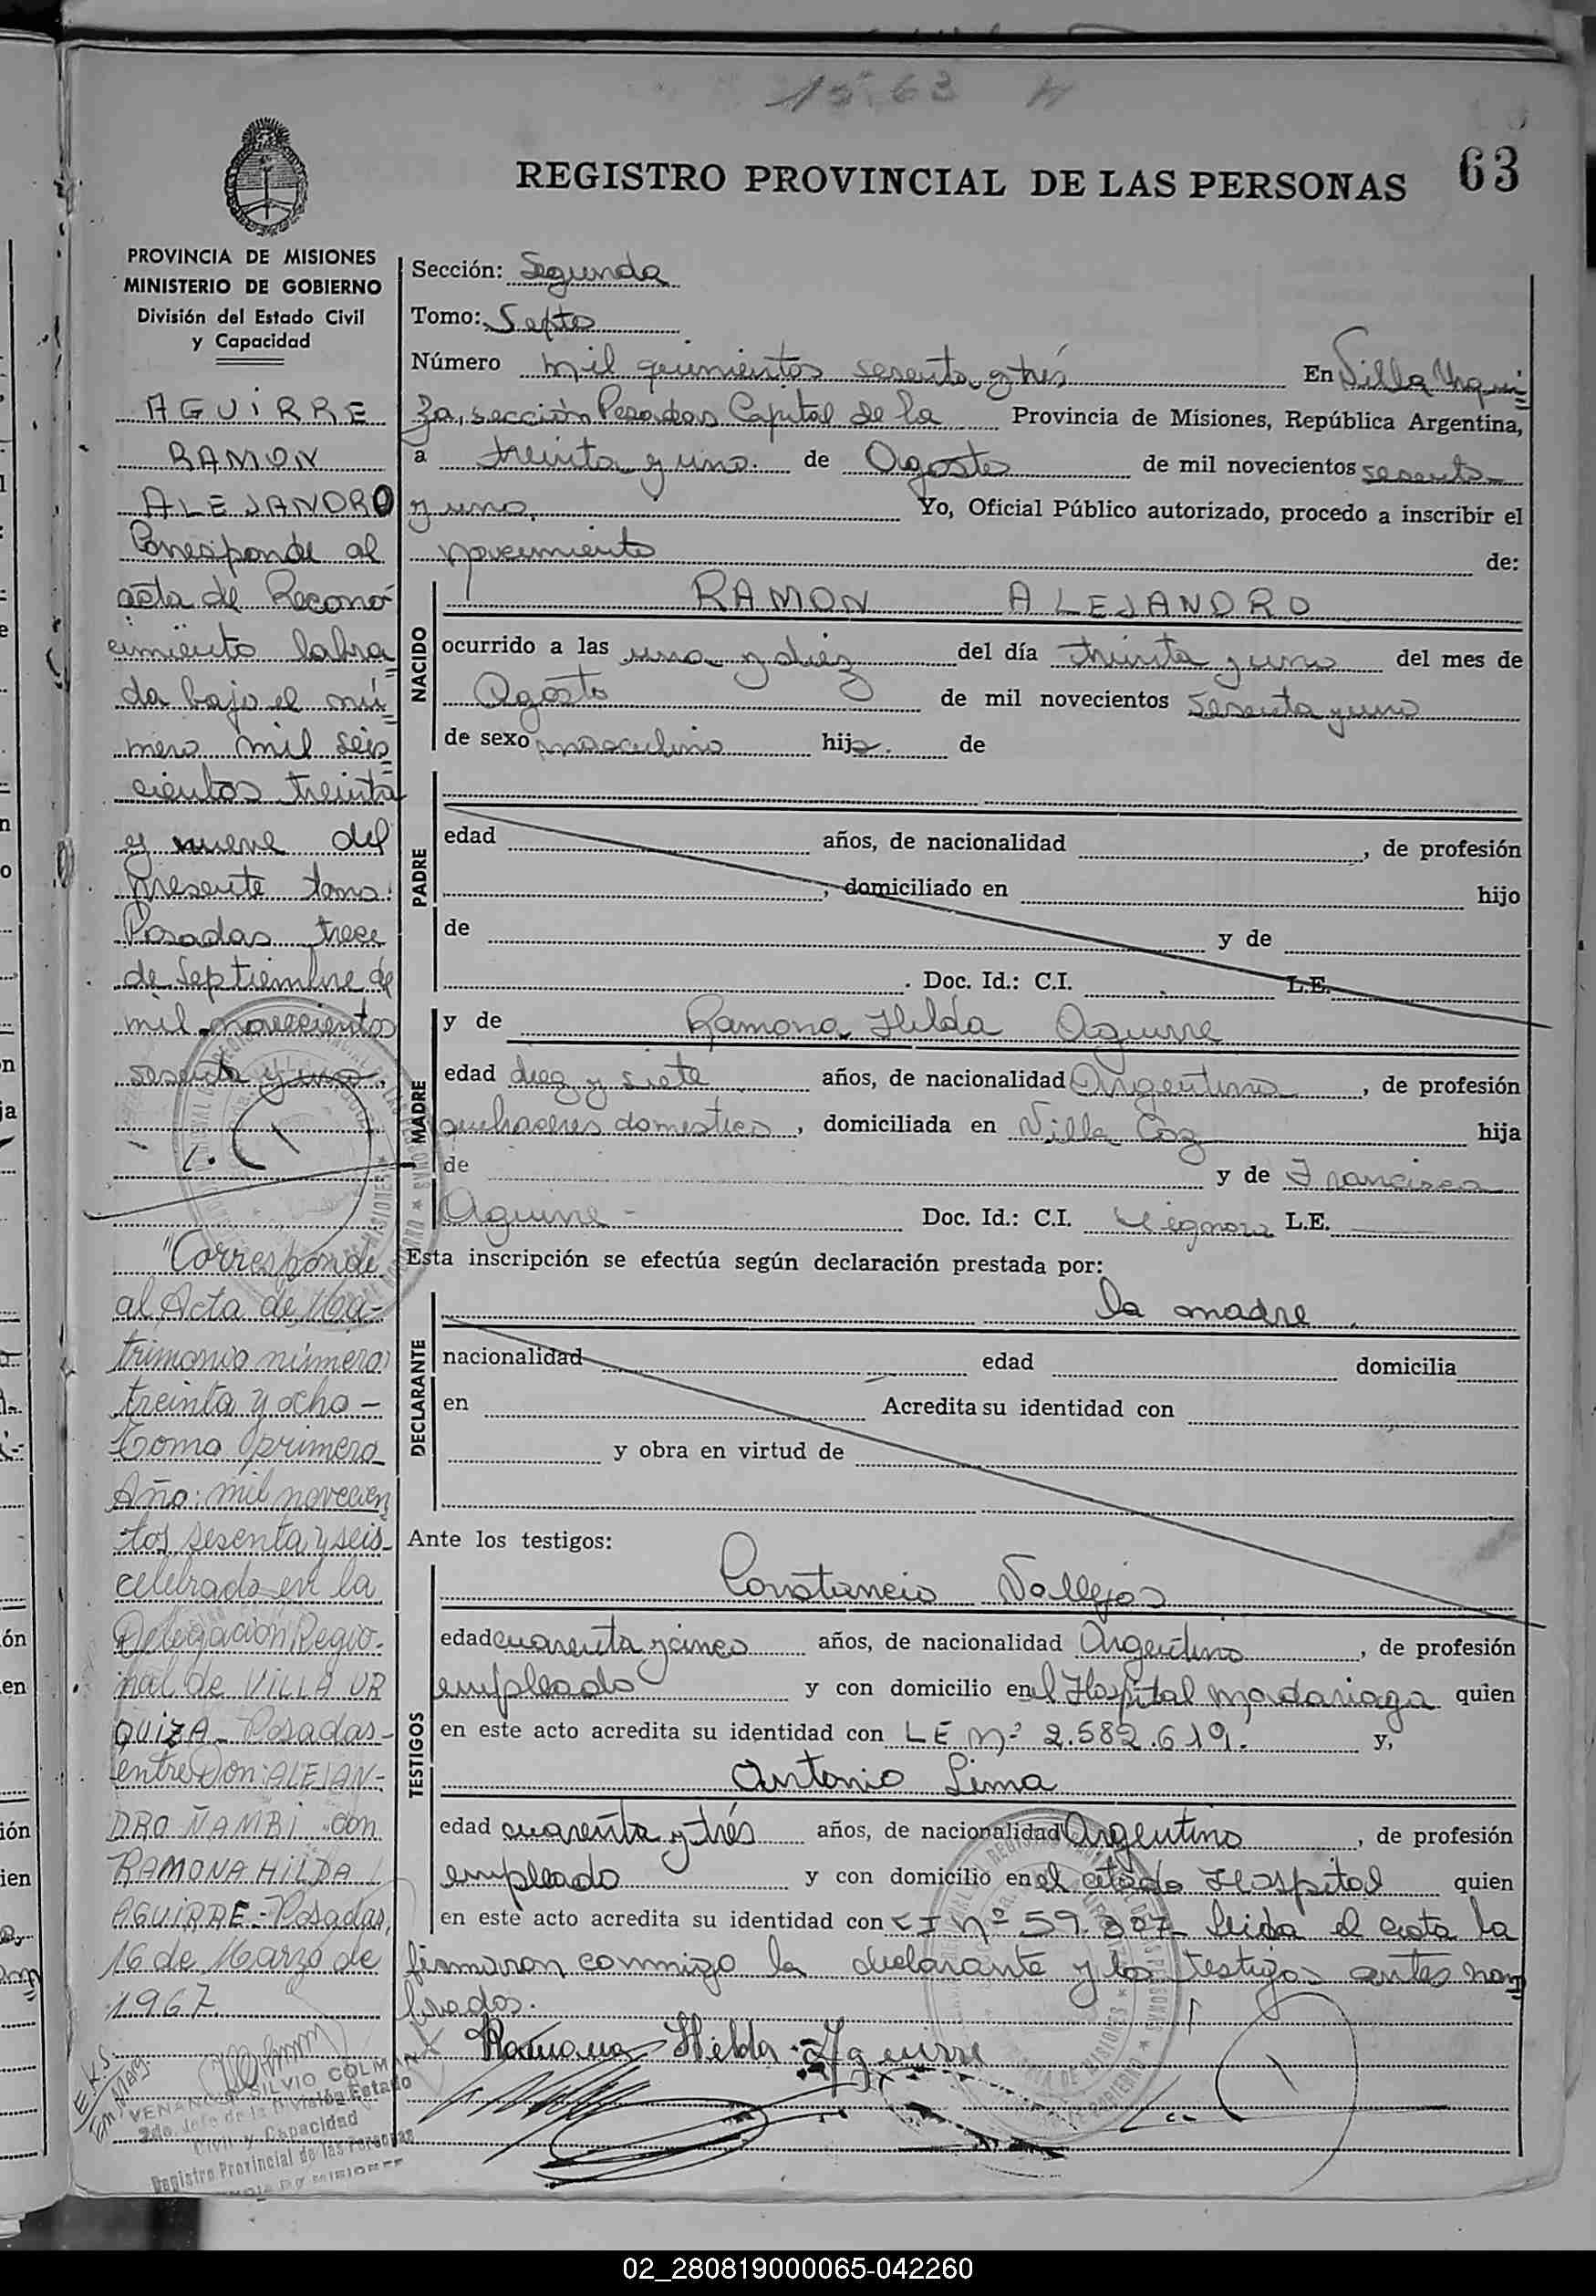 15.63
63
REGISTRO PROVINCIAL DE LAS PERSONAS
PROVINCIA DE MISIONES
MINISTERIO DE GOBIERNO
División del Estado Civil
y Capacidad
AGUIRRE
RAMON
ALEJANDRO
Corresponde al
acta de Recono
cimiento labra
da bajo el nú
mero mil seis
cientos treinta
y nueve del
presente tomo.
Posadas trece
de Septiembre de
mil novecientos
sesenta y uno.
"Corresponde
al Acta de Ma-
trimonio número
treinta y ocho -
Tomo primero
Año: mil novecien
tos sesenta y seis
celebrado en la
Delegación Regio-
nal de VILLA UR
QUIZA - Posadas-
entre Don: ALEJAN-
DRO ÑAMBI con
RAMONA HILDA
AGUIRRE.- Posadas,
16 de Marzo de
1967
E.K.S.
SILVIO COLMAN
2do. Jefe de la División Estado
Civil y Capacidad
Registro Provincial de las Personas
Sección: Segunda
Tomo: Septo
Número mil quinientos sesenta y trés En Villa Urqui
za, sección Posadas Capital de la Provincia de Misiones, República Argentina,
a treinta y uno de Agosto de mil novecientos sesenta
y uno. Yo, Oficial Público autorizado, procedo a inscribir el
nacimiento de:
NACIDO
RAMON ALEJANDRO
ocurrido a las una y diez del día treinta y uno del mes de
Agosto de mil novecientos sesenta y uno
de sexo masculino hijo. de
PADRE
edad años, de nacionalidad , de profesión
, domiciliado en hijo
de y de
. Doc. Id.: C.I. L.E.
MADRE
y de Ramona Hilda Aguirre
edad diez y siete años, de nacionalidad Argentina, de profesión
quehaceres domestico, domiciliada en Villa Coz hija
de y de Francisca
Aguirre - Doc. Id.: C.I. L.E.
Esta inscripción se efectúa según declaración prestada por:
DECLARANTE
la madre.
nacionalidad edad domicilia
en Acredita su identidad con
y obra en virtud de
Ante los testigos:
TESTIGOS
Constancio Vallejos
edad cuarenta y cinco años, de nacionalidad Argentino, de profesión
empleado y con domicilio en el Hospital Madariaga quien
en este acto acredita su identidad con LE Nº 2.582.619. y,
Antonio Lima
edad cuarenta y trés años, de nacionalidad Argentino, de profesión
empleado y con domicilio en el citado Hospital quien
en este acto acredita su identidad con CI Nº 59.307 leida el acta la
firmaron conmigo la declarante y los testigos antes nom
brados.
Ramona Hilda Aguirre
02_280819000065-042260